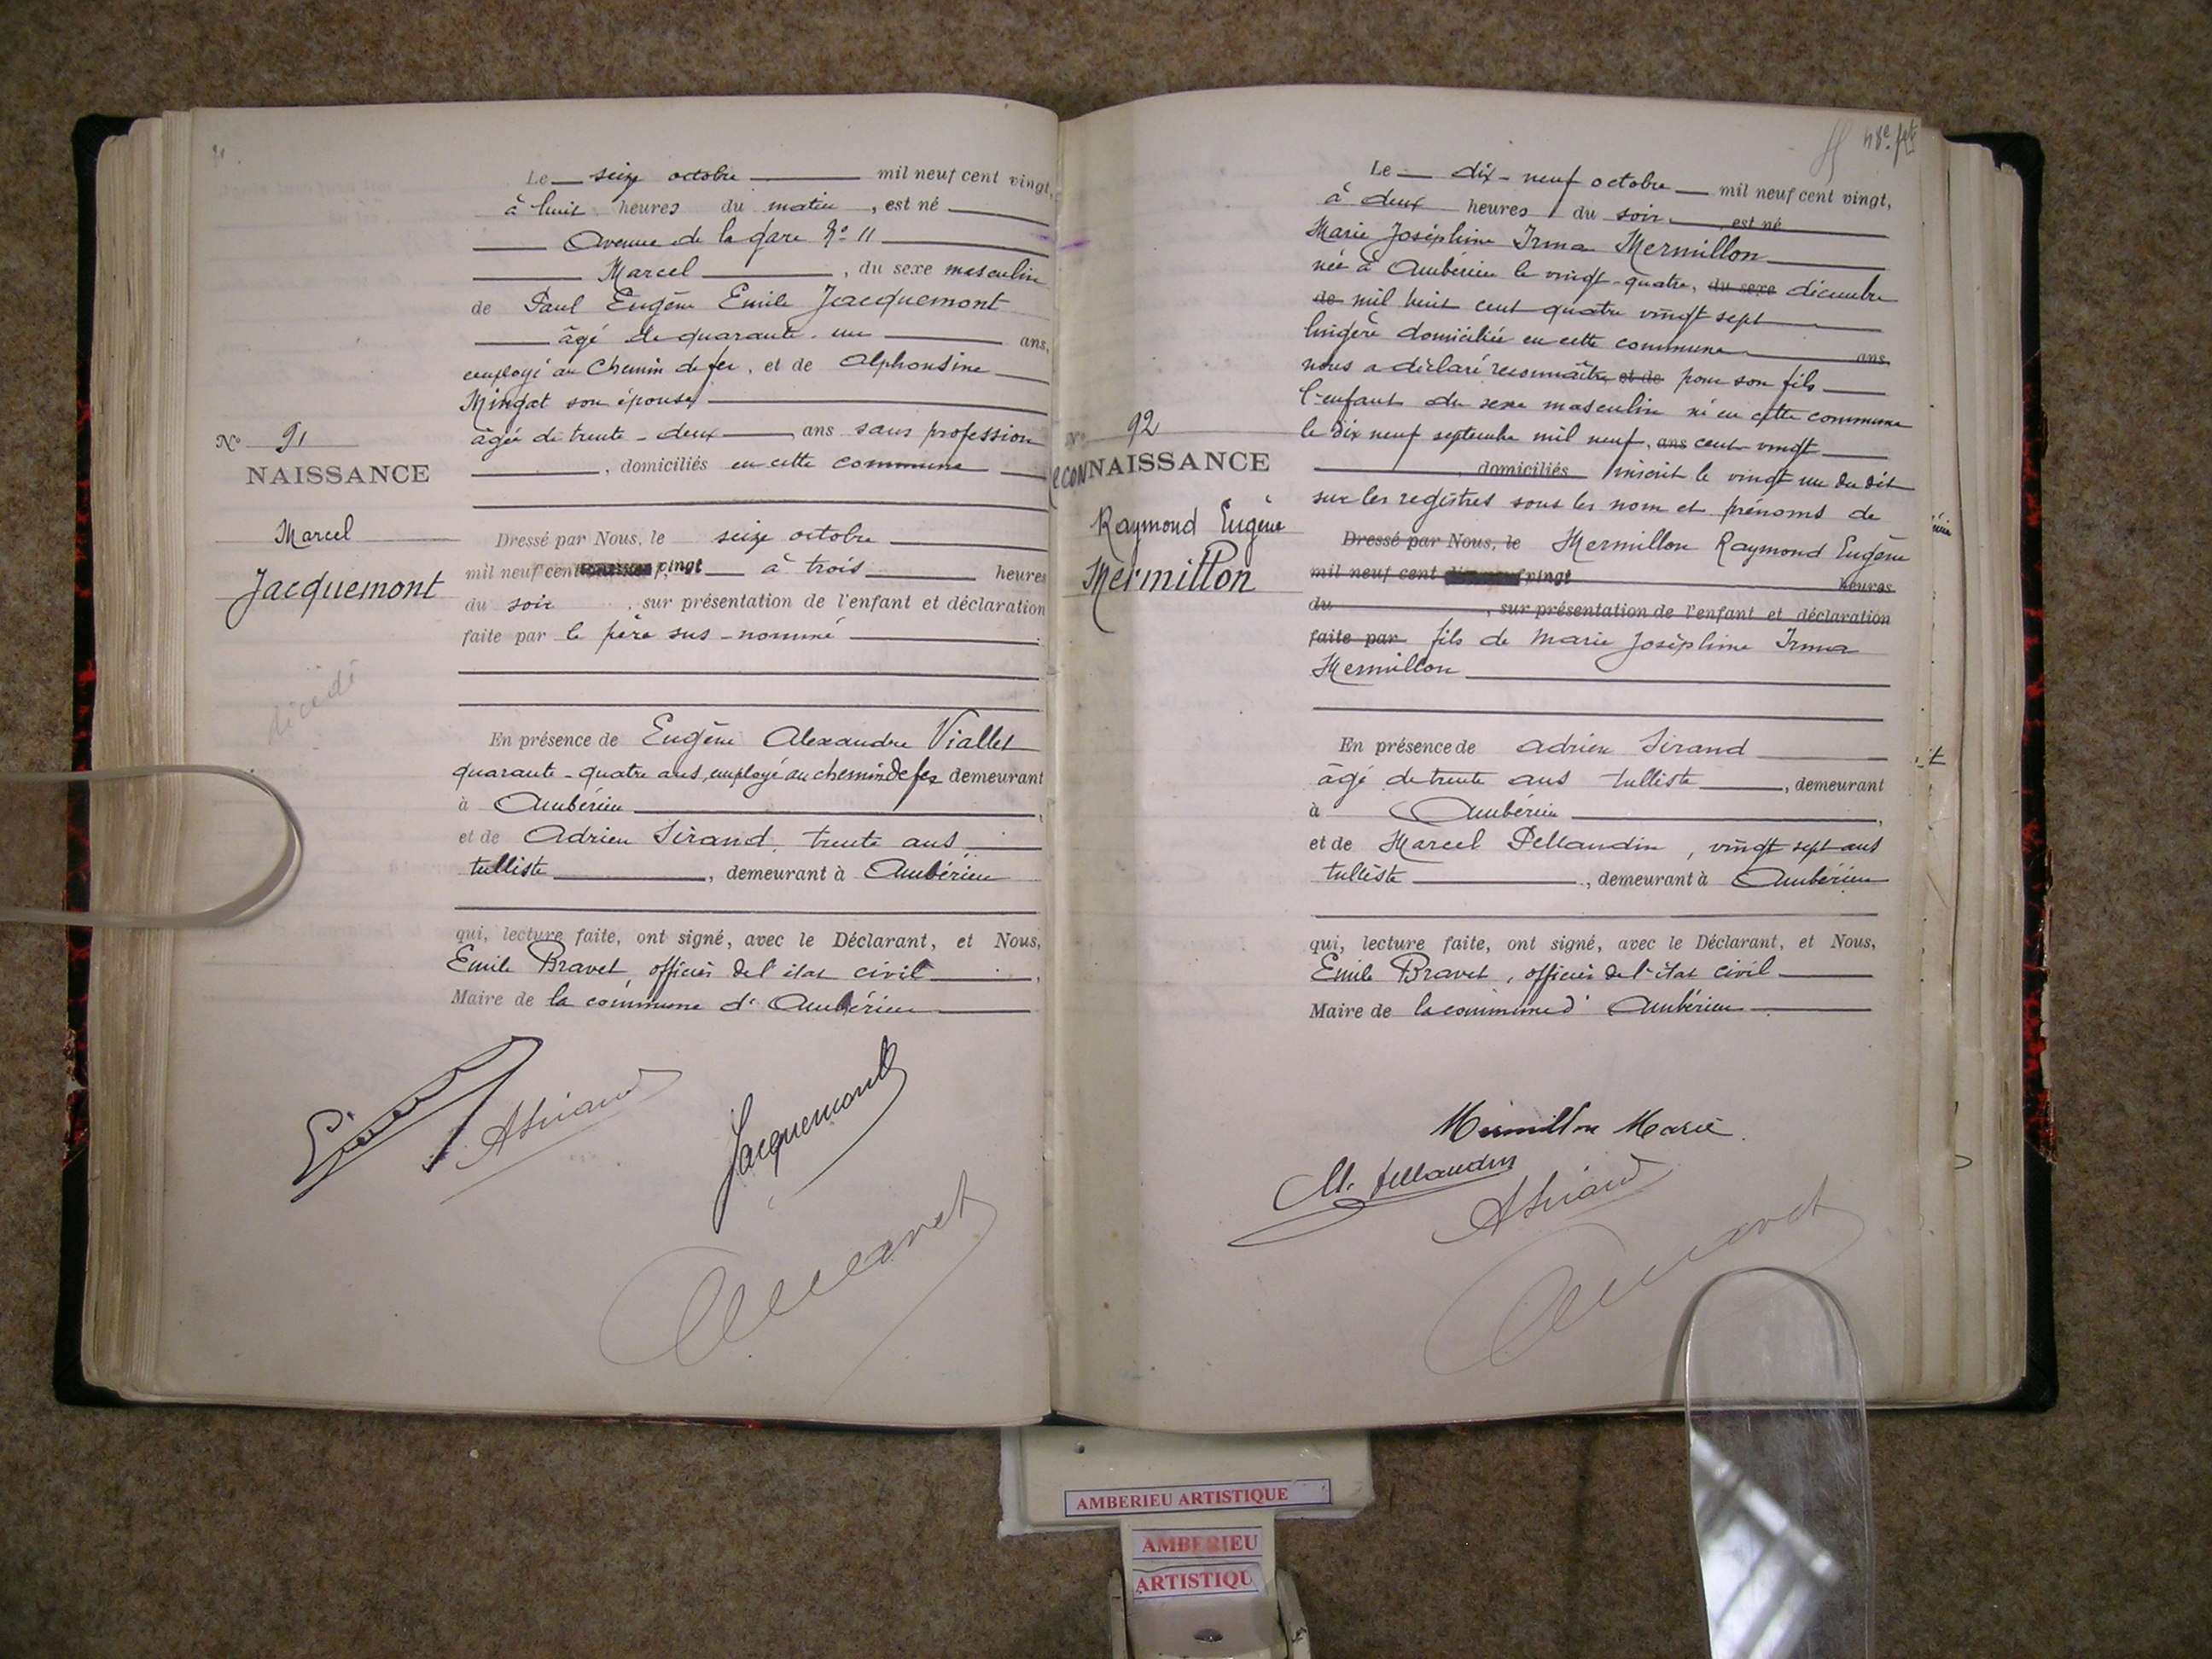 Le seize octobre mil neuf cent vingt,
à huit heures du matin, est né
Avenue de la gare No 11
Marcel, du sexe masculin
de Paul Eugène Emile Jacquemont
âgé de quarante-un ans,
employé au Chemin de fer, et de Alphonsine
Mingat son épouse
âgée de trente-deux ans sans profession
, domiciliés en cette commune
No 91
NAISSANCE
Marcel
Jacquemont
décédé
Dressé par Nous, le seize octobre
mil neuf cent vingt à trois heures
du soir, sur présentation de l'enfant et déclaration
faite par le père sus-nommé
En présence de Eugène Alexandre Viallet
quarante-quatre ans, employé au chemin de fer demeurant
à Ambérieu
et de Adrien Sirand, trente ans,
tulliste, demeurant à Ambérieu
qui, lecture faite, ont signé, avec le Déclarant, et Nous,
Emile Bravet, officier de l'état civil,
Maire de la commune d'Ambérieu
ASirand
Jacquemont
48e ft
Le dix-neuf octobre mil neuf cent vingt,
à deux heures du soir, est né
Marie Joséphine Irma Mermillon
née à Ambérieu le vingt-quatre, du sexe décembre
de mil huit cent quatre vingt sept
lingère domiciliée en cette commune ans
nous a déclaré reconnaître et de pour son fils
l'enfant du sexe masculin né en cette commune
le dix neuf septembre mil neuf, ans cent vingt
, domiciliés inscrit le vingt un du dit
sur les registres sous les nom et prénoms de
No 92
reconNAISSANCE
Raymond Eugène
Mermillon
Dressé par Nous, le Mermillon Raymond Eugène
mil neuf cent vingt heures
du , sur présentation de l'enfant et déclaration
faite par fils de Marie Joséphine Irma
Mermillon
En présence de Adrien Sirand
âgé de trente ans tulliste, demeurant
à Ambérieu,
et de Marcel Pellaudin, vingt sept ans
tulliste, demeurant à Ambérieu
qui, lecture faite, ont signé, avec le Déclarant, et Nous,
Emile Bravet, officier de l'état civil
Maire de la commune d'Ambérieu
Mermillon Marie
M. Pellaudin
ASirand
AMBERIEU ARTISTIQUE
AMBERIEU
ARTISTIQU